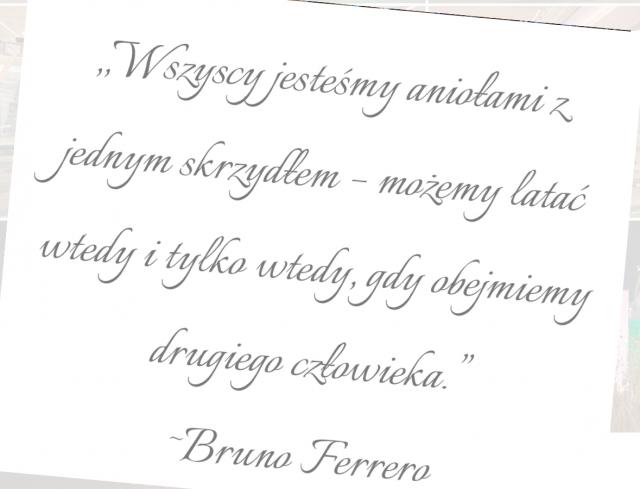 „Wszyscy jesteśmy aniołami z
jednym skrzydłem – możemy latać
wtedy i tylko wtedy, gdy obejmiemy
drugiego człowieka.”
~Bruno Ferrero